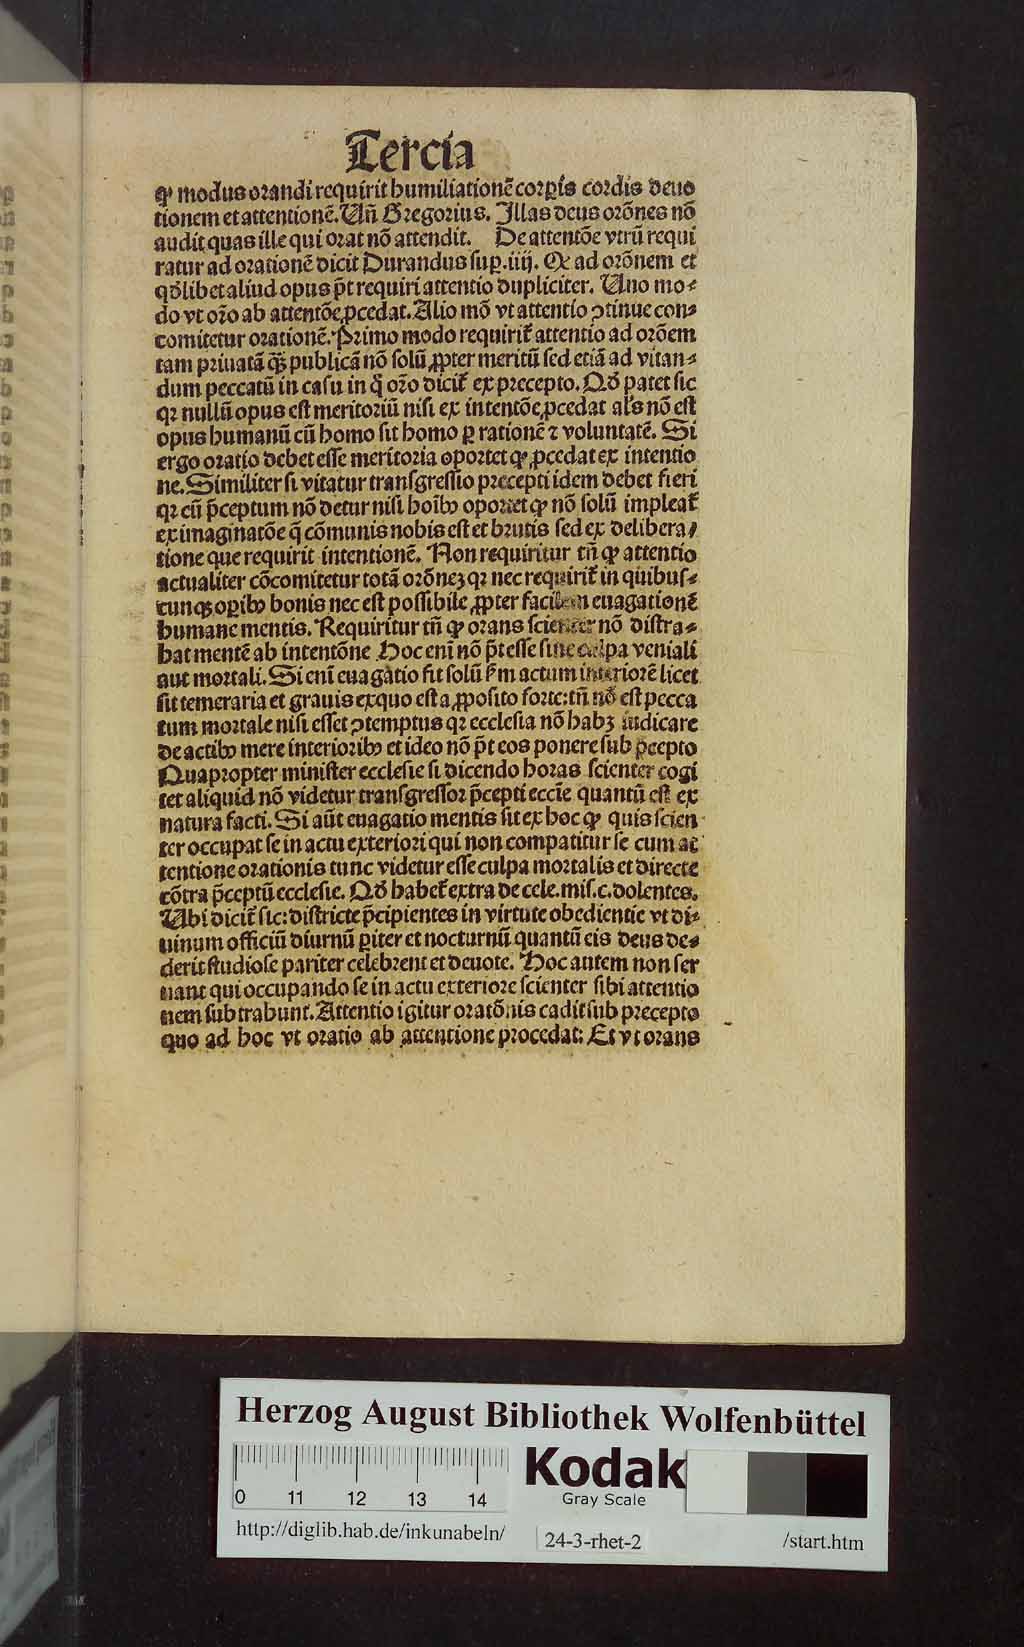 Tercia
ꝙ modus orandi requirit humiliationē corꝑis cordis deuo
tionem et attentionē. Uñ Gregorius. Illas deus orōnes nō
audit quas ille qui orat nō attendit. De attentōe vtrū requi
ratur ad orationē dicit Durandus suꝑ. iiij. Ꝙ ad orōnem et
qd̄libet aliud opus p̄t requiri attentio dupliciter. Uno mo-
do vt orō ab attentōe ꝓcedat. Alio mō vt attentio ꝯtinue con-
comitetur orationē. Primo modo requirit̄ attentio ad orōem
tam priuatā qȝ̄ publicā nō solū ꝓpter meritū sed etiā ad vitan-
dum peccatū in casu in q̄ orō dicit̄ ex precepto. Qd̄ patet sic
qꝛ nullū opus est meritoriū nisi ex intentōe ꝓcedat al's nō est
opus humanū cū homo sit homo ꝑ rationē ⁊ voluntatē. Si
ergo oratio debet esse meritoria oportet ꝙ ꝓcedat ex intentio
ne. Similiter si vitatur transgressio precepti idem debet fieri
qꝛ cū p̄ceptum nō detur nisi hoībꝰ oportet ꝙ nō solū impleat̄
ex imaginatōe q̄ cōmunis nobis est et brutis sed ex delibera-
tione que requirit intentionē. Non requiritur tñ ꝙ attentio
actualiter cōcomitetur totā orōneȝ qꝛ nec requirit̄ in quibus-
cunqȝ oꝑibꝰ bonis nec est possibile ꝓpter facilem euagationē
humane mentis. Requiritur tñ ꝙ orans scienter nō distra-
hat mentē ab intentōne Hoc enī nō p̄t esse sine culpa veniali
aut mortali. Si enī euagatio fit solū ẜm actum interiorē licet
sit temeraria et grauis exquo est a ꝓposito forte: tñ nō est pecca
tum mortale nisi esset ꝯtemptus qꝛ ecclesia nō habȝ iudicare
de actibꝰ mere interioribꝰ et ideo nō p̄t eos ponere sub p̄cepto
Quapropter minister ecclesie si dicendo horas scienter cogi
tet aliquid nō videtur transgressor p̄cepti eccīe quantū est ex
natura facti. Si aūt euagatio mentis sit ex hoc ꝙ quis scien
ter occupat se in actu exteriori qui non compatitur se cum at
tentione orationis tunc videtur esse culpa mortalis et directe
cōtra p̄ceptū ecclesie. Qd̄ habet̄ extra de cele. mis. c. dolentes.
Ubi dicit̄ sic: districte p̄cipientes in virtute obedientie vt di-
uinum officiū diurnū ꝑiter et nocturnū quantū eis deus de-
derit studiose pariter celebrent et deuote. Hoc autem non ser
uant qui occupando se in actu exteriore scienter sibi attentio
nem subtrahunt. Attentio igitur oratōnis cadit sub precepto
quo ad hoc vt oratio ab attentione procedat: Et vt orans
Herzog August Bibliothek Wolfenbüttel
Kodak
Gray Scale
0 11 12 13 14
http://diglib.hab.de/inkunabeln/
24-3-rhet-2
/start.htm